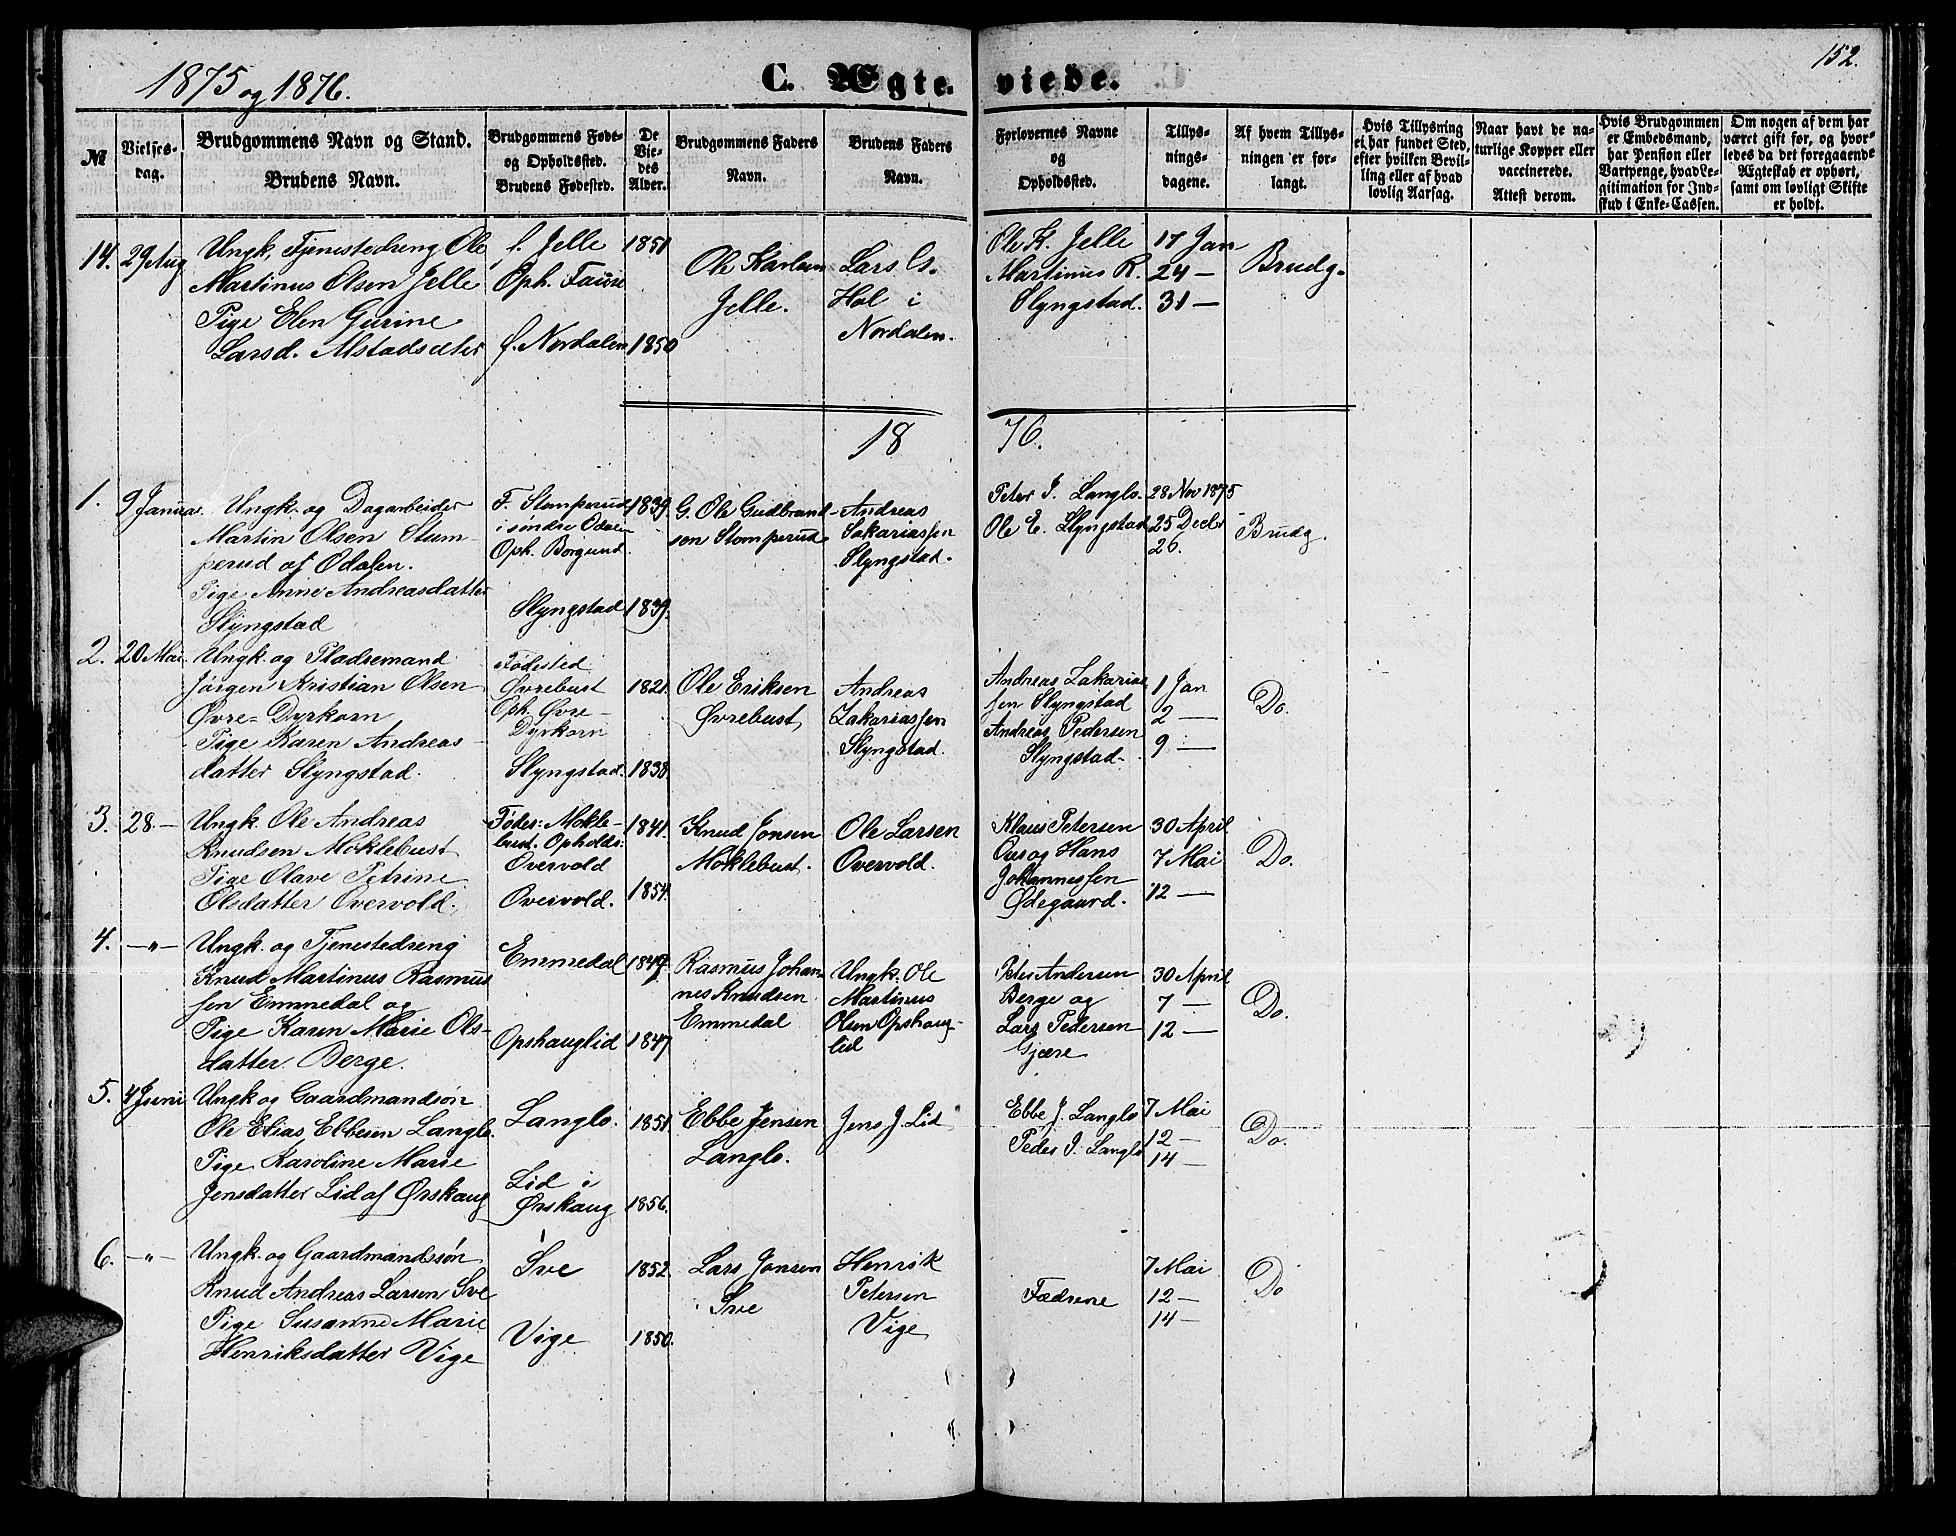 1875 og 1876.
C. Ægte- viede.
152.
№
Vielses-
dag.
Brudgommens Navn og Stand.
Brudens Navn.
Brudgommens Føde-
og Opholdssted.
Brudens Fødested.
De
Vie-
des
Alder.
Brudgommens Faders
Navn.
Brudens Faders
Navn.
Forlovernes Navne
og
Opholdssted.
Tillys-
nings-
dagene.
Af hvem Tillys-
ningen er for-
langt.
Hvis Tillysning
ei har fundet Sted,
efter hvilken Bevil-
ling eller af hvad
lovlig Aarsag.
Naar havt de na-
turlige Kopper eller
vaccinerede.
Attest derom.
Hvis Brudgommen
er Embedsmand,
har Pension eller
Vartpenge, hvad Le-
gitimation for Ind-
skud i Enke-Cassen.
Om nogen af dem har
været gift før, og hvor-
ledes da det foregaaende
Ægteskab er ophørt,
samt om lovligt Skifte
er holdt.
14. 29 Aug
Ungk. Tjenestedreng Ole
Martinus Olsen Jelle
Pige Elen Gurine
Larsd. Alstadsæter
f. Jelle
Oph.
f. Nordalen
1851
1850
Ole Karlsen
Jelle.
Lars
Hol i
Nordalen.
Ole K. Jelle
Martinus R.
Slyngstad.
17 Jan
24 —
31 —
Brudg.
18 76.
1. 9 Januar
Ungk. og Dagarbeider
Martin Olsen Stum-
perud af Odalen.
Pige Anne Andreasdatter
Slyngstad
F. Stomperud
i søndre Odalen
Oph. Borgund.
Slyngstad
1839.
1839.
G. Ole Gudbrand-
sen Stomperud
Andreas
Sakariassen
Slyngstad.
Peter J. Langlo.
Ole E. Slyngstad
28 Nov 1875
25 Decbr
26.
Brudg.
2. 20 Mai
Ungk. og Pladsemand
Jørgen Kristian Olsen
Øvre-Dyrkorn
Pige Karen Andreas-
datter Slyngstad.
Fødested
Øvrebust
Oph. Øvre-
Dyrkorn
Slyngstad.
1821.
1838
Ole Eriksen
Øvrebust
Andreas
Zakariassen
Slyngstad.
Andreas Zakarias-
sen Slyngstad
Andreas Pedersen
Slyngstad.
1 Jan
2 —
9 —
Do.
3. 28 —
Ungk. Ole Andreas
Knudsen Moklebust
Pige Olave Petrine
Olsdatter Overvold.
Fødes: Mokle-
bust. Opholds:
Overvold
Overvold.
1841.
1854.
Knud Jonsen
Moklebust.
Ole Larsen
Overvold.
Klaus Petersen
og Hans
Johannessen
Ødegaard.
30 April
7 Mai
12 —
Do.
4. —"—
Ungk. og Tjenestedreng
Knud Martinus Rasmus
sen Emmedal og
Pige Karen Marie Ols-
datter Berge.
Emmedal
Opshauglid
1847
Rasmus Johan-
nes Knudsen
Emmedal
Ungk. Ole
Martinus
Olsen Opshaug-
lid
Peter Andersen
Berge og
Lars Pedersen
Gjære
30 April
7 —
12 —
Do.
5. 4 Juni
Ungk og Gaardmandsøn
Ole Elias Ebbesen Langlo.
Pige Karoline Marie
Jensdatter Lid af Ørskaug
Langlo.
Lid i
Ørskaug
1851.
1856.
Ebbe Jensen
Langlo.
Jens J. Lid
Ebbe J. Langlo
Peder J. Langlo
7 Mai
12 —
14 —
Do.
6. —"—
Ungk. og Gaardmandssøn
Knud Andreas Larsen Sve
Pige Susanne Marie
Henriksdatter Vige
Sve
Vige
1852.
1850.
Lars Jonsen
Sve
Henrik
Petersen
Vige
Fædrene
7 Mai
12 —
14 —
Do